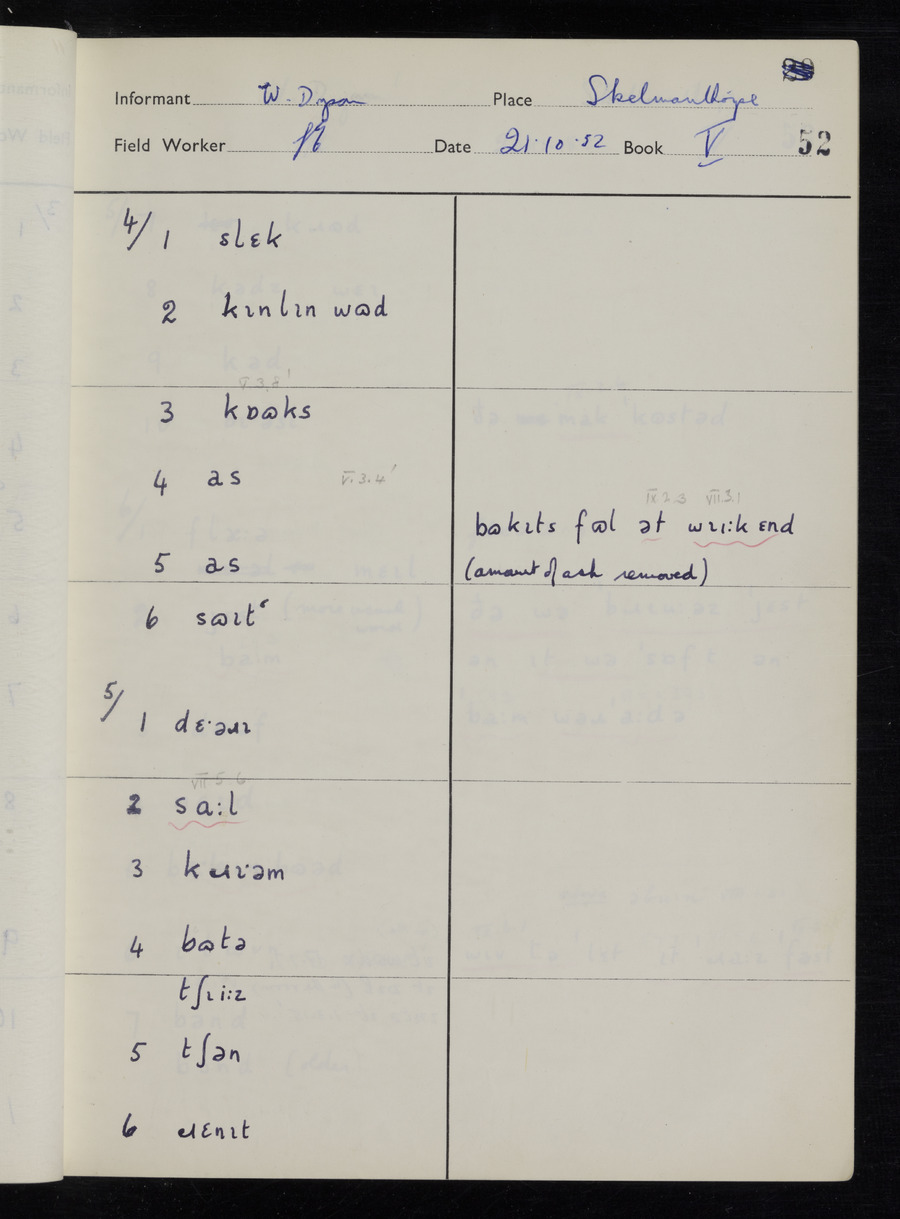 Informant W. Dyson Place Skelmanthorpe
Field Worker Date 21.10.52 Book V 52
4/ 1 slɛk
2 kɪnlɪn wɷd
V.3.8'
3 kɒɷks
4 as V.3.4'
IX 2.3 VII 3.1
bɷkɪts fɷl ət wɪi:k ɛnd
5 as (amount of ash removed)
6 sɷɪtᶜ
5/ 1 dɛ·əɹɪ
VII 5 6
2 sa:l
3 kɹɪ·əm
4 bɷtə
tʃɪi:z
5 tʃən
6 ɹɛnɪt